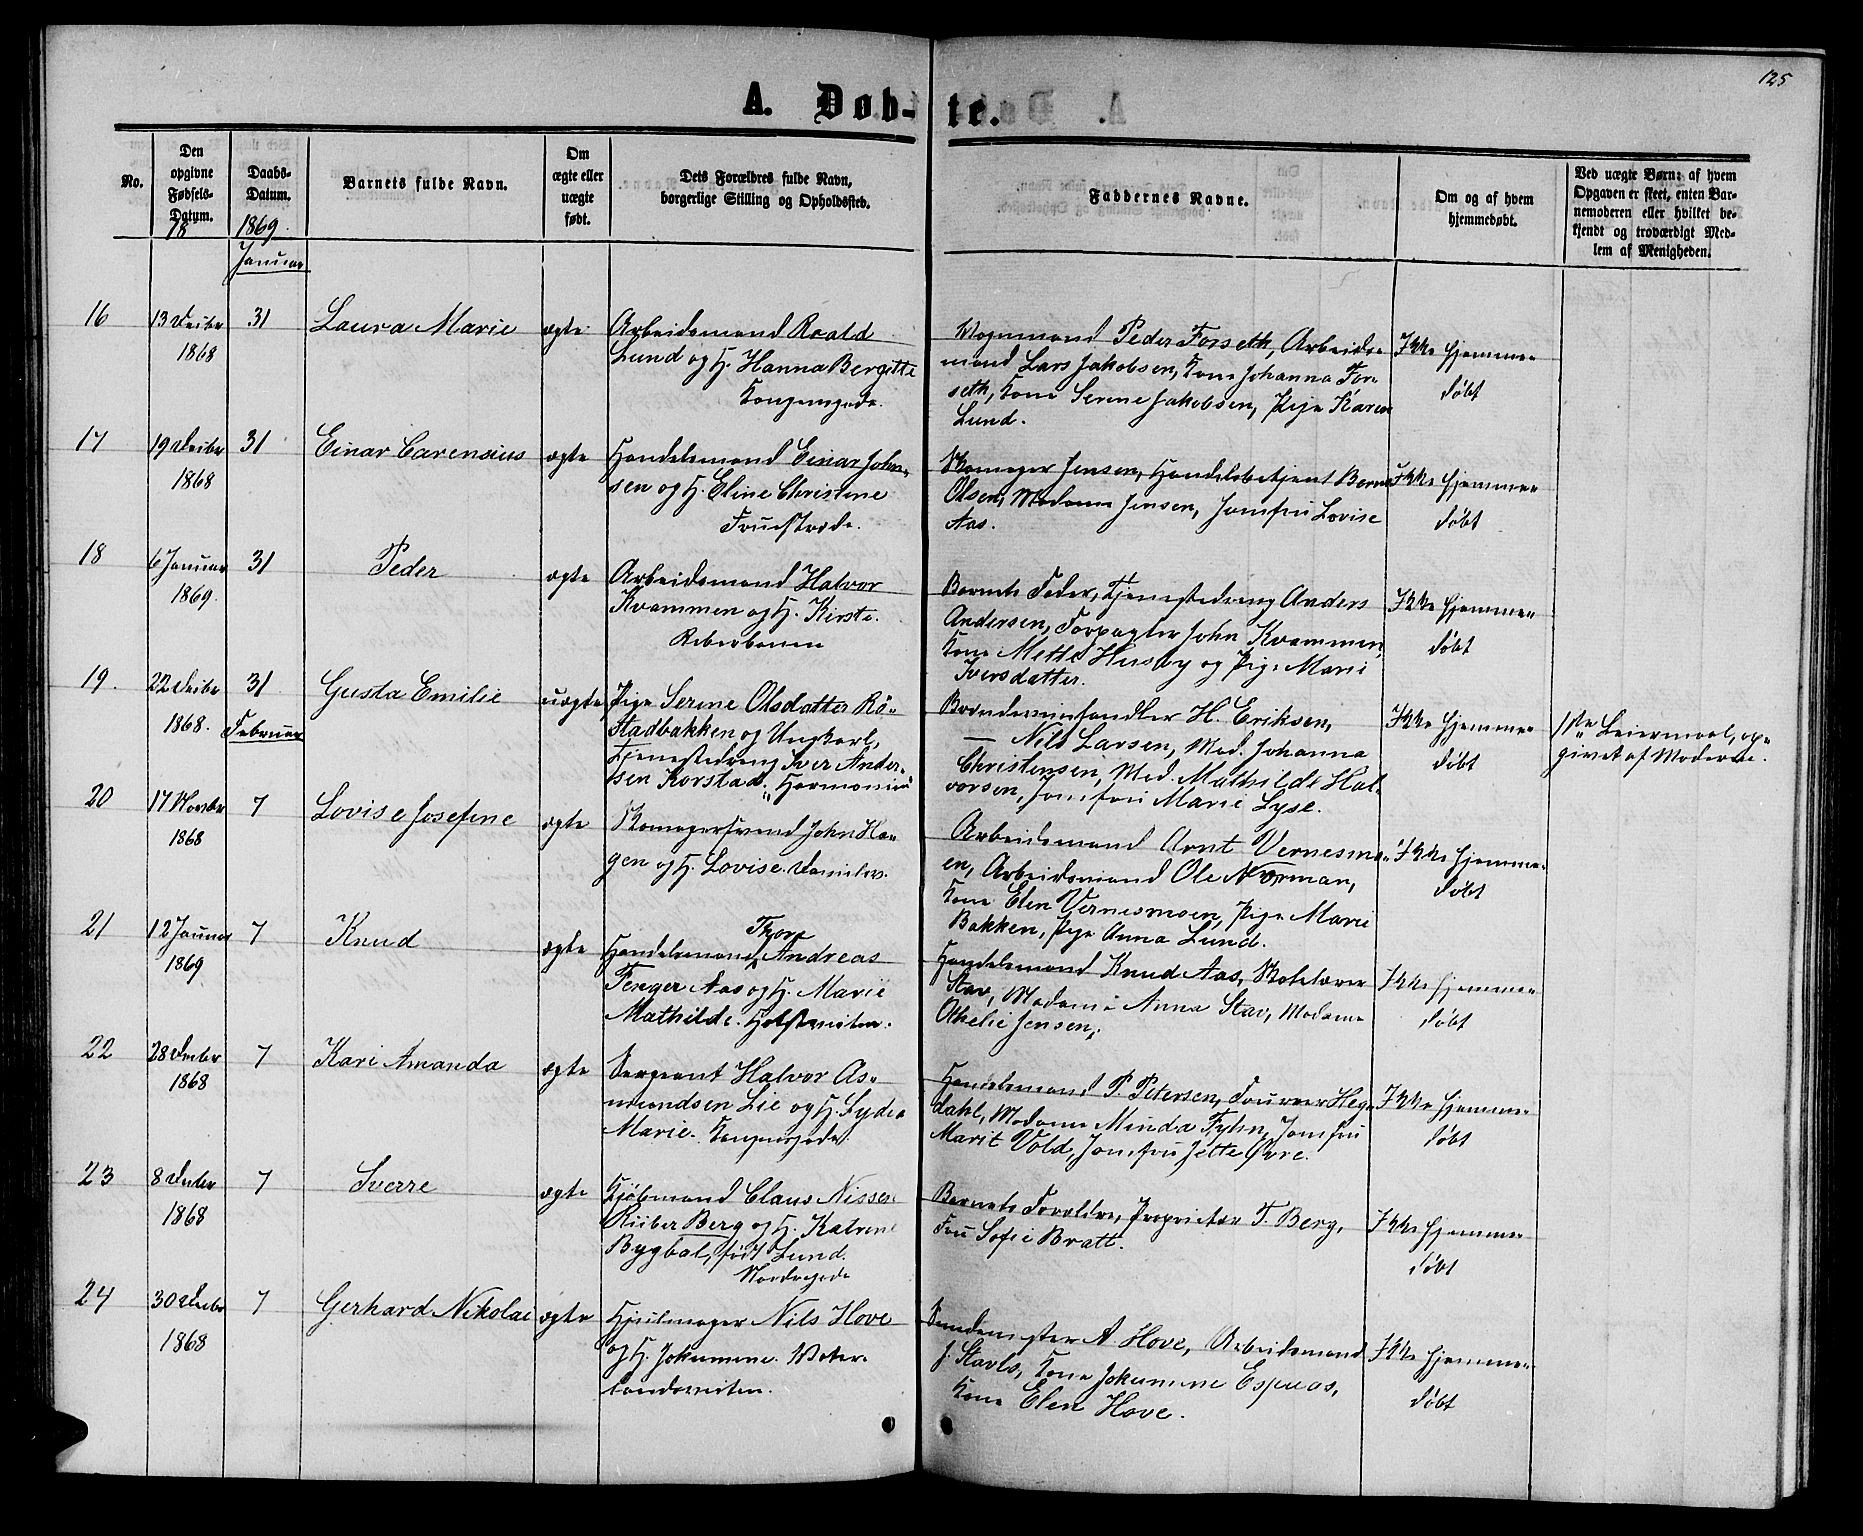 125
A. Døb-te.
No.
Den opgivne Fødsels-Datum.
Daabs-Datum.
Barnets fulde Navn.
Om ægte eller uægte født.
Dets Forældres fulde Navn,
borgerlige Stilling og Opholdssted.
Faddernes Navne.
Om og af hvem
hjemmedøbt.
Ved uægte Børn: af hvem
Opgaven er skeet, enten Bar-
nemoderen eller hvilket be-
kjendt og troværdigt Med-
lem af Menigheden.
18
1869.
Januar
16
13 Decbr
1868
31
Laura Marie
ægte
Arbeidsmand Roald
Lund og H. Hanna Bergitte
Kongensgade.
Vognmand Peder Forseth, Arbeids-
mand Lars Jakobsen, Kone Johanna For-
seth, Kone Serene Jakobsen, Pige Karen
Lund.
Ikke hjemme-
døbt
17
19 Decbr
1868
31
Einar Carensius
ægte
Handelsmand Einar John-
sen og H. Eline Christine
Fruestræde.
Skomager Jensen, Handelsbetjent Bernt
Olsen, Madame Jensen, Jomfru Lovise
Aas.
Ikke hjemme-
døbt
18
6 Januar
1869.
31
Peder
ægte
Arbeidsmand Halvor
Kvammen og H. Kirste.
Barnets Fader, Tjenestedreng Anders
Andersen, Forpagter John Kvammen,
Kone Mette Husby og Pige Marie
Iversdatter.
Ikke hjemme-
døbt
19.
22 Decbr
1868.
31
Februar
Gusta Emilie
uægte
Pige Serene Olsdatter Rö-
stadbakken og Ungkarl,
Tjenestedreng Iver Ander-
sen Korstad. "Harmonien"
Brændevinshandler H. Eriksen,
— Nils Larsen, Mad. Johanna
Christensen, Mad. Mathilde Hal-
vorsen, Jomfru Marie Lyse.
Ikke hjemme-
døbt
1ste Leiermaal, op-
givet af Moderen.
20
17 Novbr
1868
7
Lovise Josefine
ægte
Skomagersvend John Ha-
gen og H. Lovise.
Arbeidsmand Arnt Vernesmo-
en, Arbeidsmand Ole Norman,
Kone Elen Vernesmoen, Pige Marie
Bakken, Pige Anna Lund.
Ikke hjemme-
døbt
21
12 Januar
1869
7
Knud
ægte
Thore
Handelsmand Andreas
Fenger Aas og H. Marie
Mathilde.
Handelsmand Knud Aas, Skolelærer
Stav, Madame Anna Stav, Madame
Othelie Jensen.
Ikke hjemme-
døbt
22
28 Decbr
1868
7
Kari Amanda
ægte
Sergeant Halvor As-
mundsen Lie og H. Lydia
Marie. Kongensgade.
Handelsmand P. Petersen, Fourer Heg-
dahl, Madame Minda Fyhn, Jomfru
Marit Vold, Jomfru Jette Øvre.
Ikke hjemme-
døbt
23
8 Decbr
1868
7
Sverre
ægte
Kjöbmand Claus Nissen
Riiber Berg og H. Katrine
Bygbal, født Lund.
Nordregade
Barnets Forældre, Proprietær T. Berg,
Fru Sofie Bratt.
Ikke hjemme-
døbt
24
30 Decbr
1868
7
Gerhard Nikolai
ægte
Hjulmager Nils Hove
og H. Jokumine.
A. Hove, Arbeidsmand
J. Kone Jokumine Espaas,
Kone Elen Hove.
Ikke hjemme-
døbt